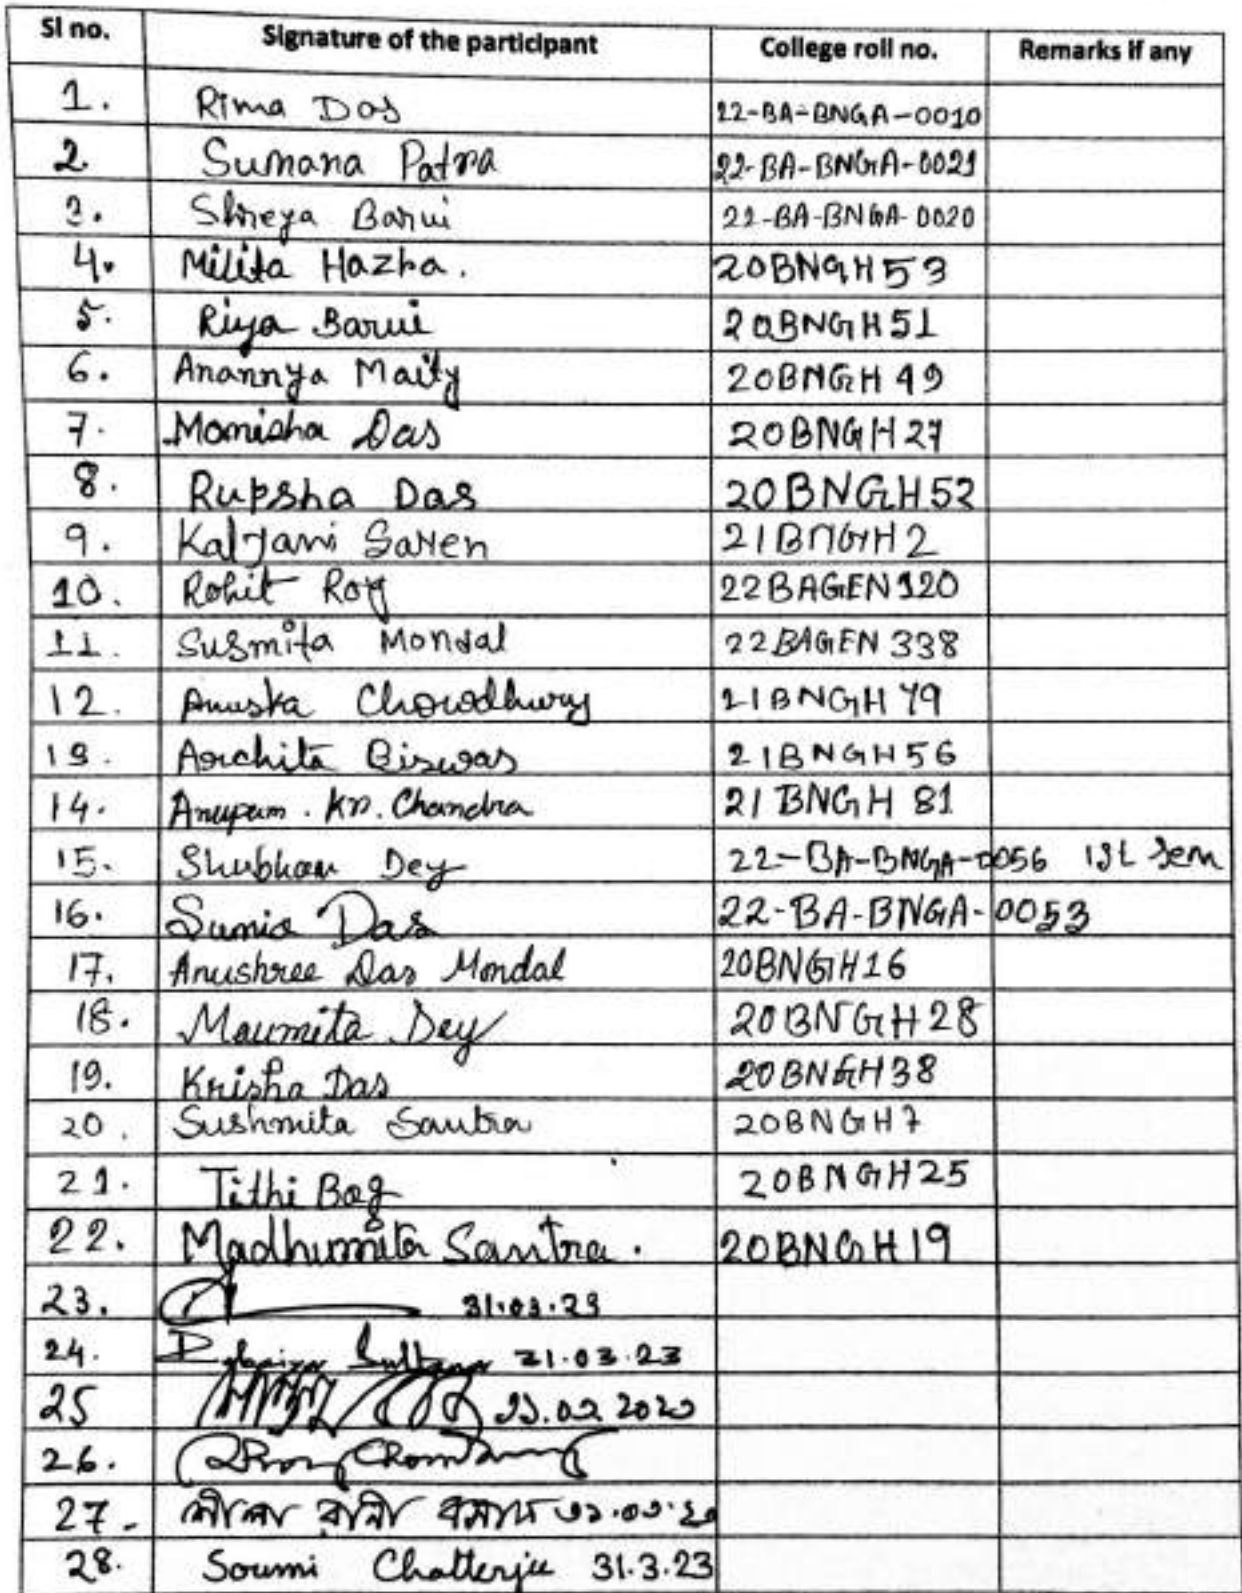 Sl no. Signature of the participant College roll no. Remarks if any
1. Rima Das 22-BA-BNGA-0010
2. Sumana Patra 22-BA-BNGA-0021
3. Shreya Barui 22-BA-BNGA-0020
4. Milita Hazra. 20BNGH53
5. Riya Barui 20BNGH51
6. Anannya Maity 20BNGH49
7. Momisha Das 20BNGH27
8. Rupsha Das 20BNGH52
9. Kalyani Saren 21BNGH2
10. Rohit Roy 22BAGEN120
11. Susmita Mondal 22BAGEN338
12. Anuska Chowdhury 21BNGH79
13. Archita Biswas 21BNGH56
14. Anupam. Kr. Chandra 21BNGH 81
15. Dey 22-BA-BNGA-0056 1st Sem
16. Das 22-BA-BNGA-0053
17. Anushree Das Mondal 20BNGH16
18. Moumita Dey 20BNGH28
19. Krisha Das 20BNGH38
20. Sushmita Santra 20BNGH7
21. Tithi Bag 20BNGH25
22. Madhumita Santra. 20BNGH19
23. 31.03.23
24. 31.03.23
25
26.
27. রানী
28. Soumi Chatterjee 31.3.23